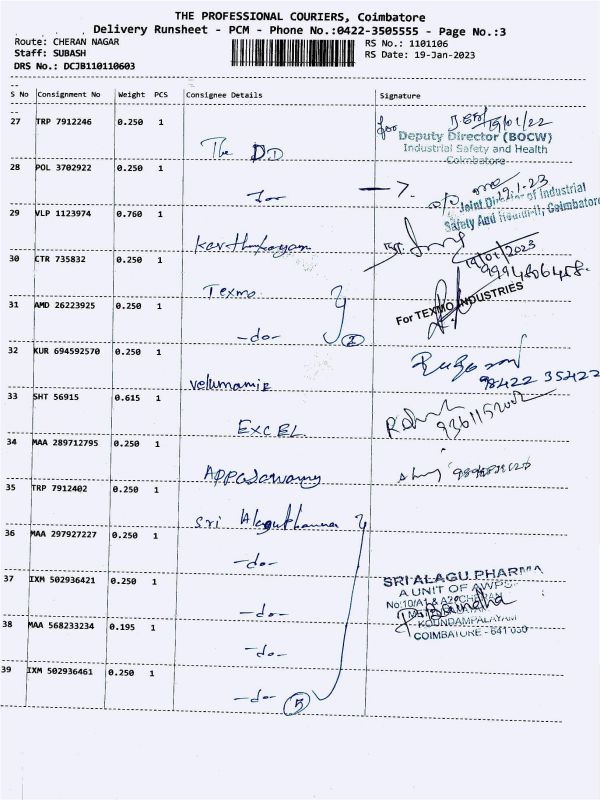 THE PROFESSIONAL COURIERS, Coimbatore
Delivery Runsheet - PCM - Phone No.:0422-3505555 - Page No.:3
Route: CHERAN NAGAR
RS No.: 1101106
Staff: SUBASH
RS Date: 19-Jan-2023
DRS No.: DCJB110110603
S No Consignment No Weight PCS Consignee Details Signature
27 TRP 7912246 0.250 1 The DD
for 19/01/22
Deputy Director (BOCW)
Industrial Safety and Health
Coimbatore
28 POL 3702922 0.250 1 -do-
19.1.23
Joint Director of Industrial
Safety And Health-II, Coimbatore
29 VLP 1123974 0.760 1 Karthikayan
19/01/2023
9994806458.
30 CTR 735832 0.250 1 Texmo
For TEXMO INDUSTRIES
31 AMD 26223925 0.250 1 -do- 2
32 KUR 694592570 0.250 1 velumamie
98422 35422
33 SHT 56915 0.615 1 EXCEL
34 MAA 289712795 0.250 1 Appasawamy
35 TRP 7912402 0.250 1 Sri Alaguthanna
36 MAA 297927227 0.250 1 -do-
37 IXM 502936421 0.250 1 -do-
SRI ALAGU PHARMA
A UNIT OF AWPS
KOUNDAMPALAYAM
COIMBATORE - 641 030
38 MAA 568233234 0.195 1 -do-
39 IXM 502936461 0.250 1 -do- 5